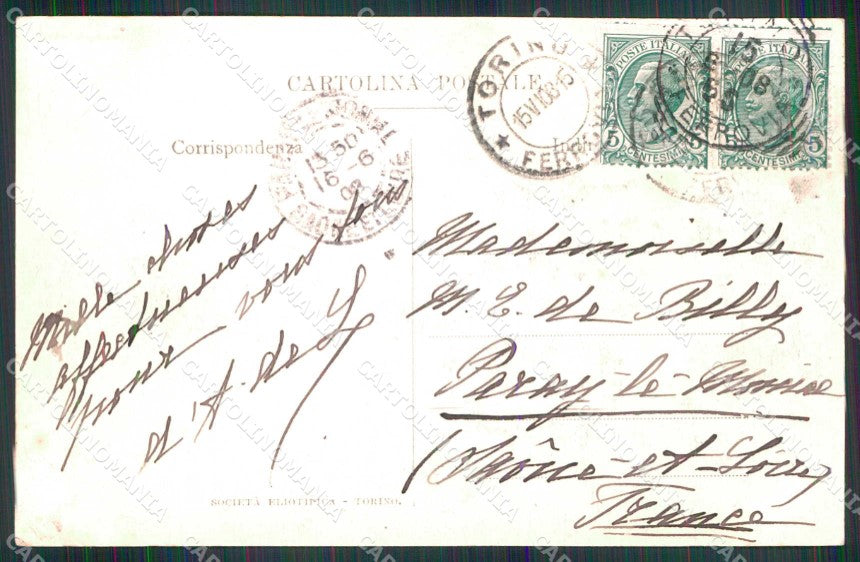 CARTOLINA POSTALE
Corrispondenza
TORINO
15 VI 08 15
FERR
POSTE ITALIANE
5 CENTESIMI 5
POSTE ITALIANE
CENTESIMI 5
FERROVIA
13 50
16 -6
08
Mille choses
affectueuses
pour vous tous
d'A. de L
Mademoiselle
M. E. de Billy
Paray-le-Monial
(Saône-et-Loire)
France
SOCIETÀ ELIOTIPICA - TORINO.
CARTOLINOMANIA